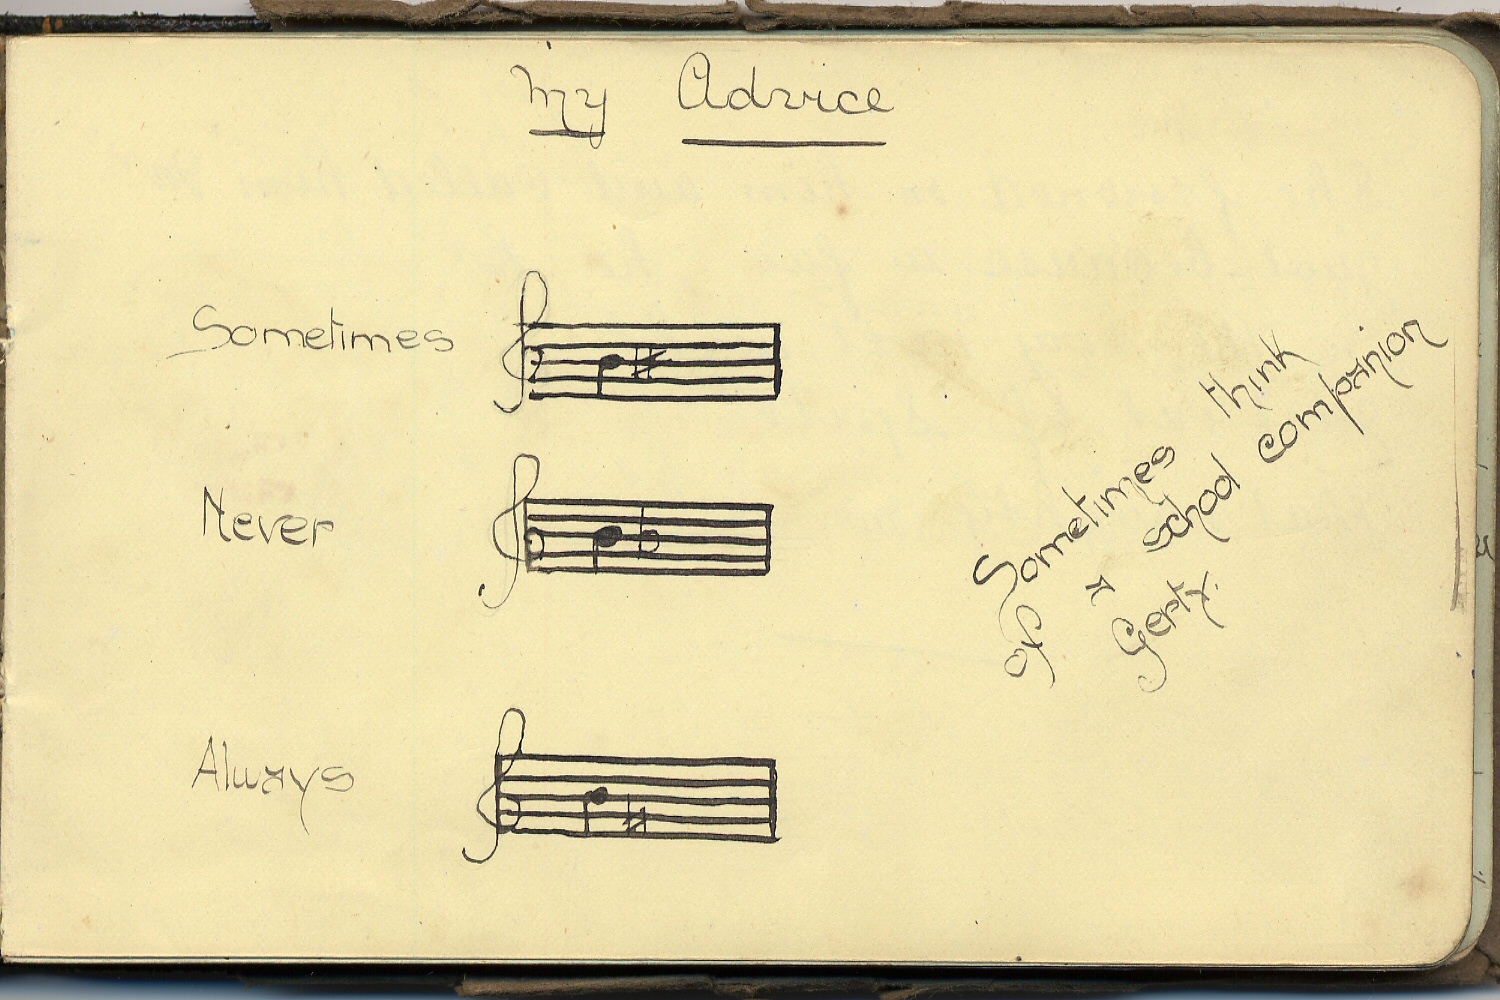 My Advice
Sometimes
Never
Always
Sometimes think
of a school companion
Gerty.